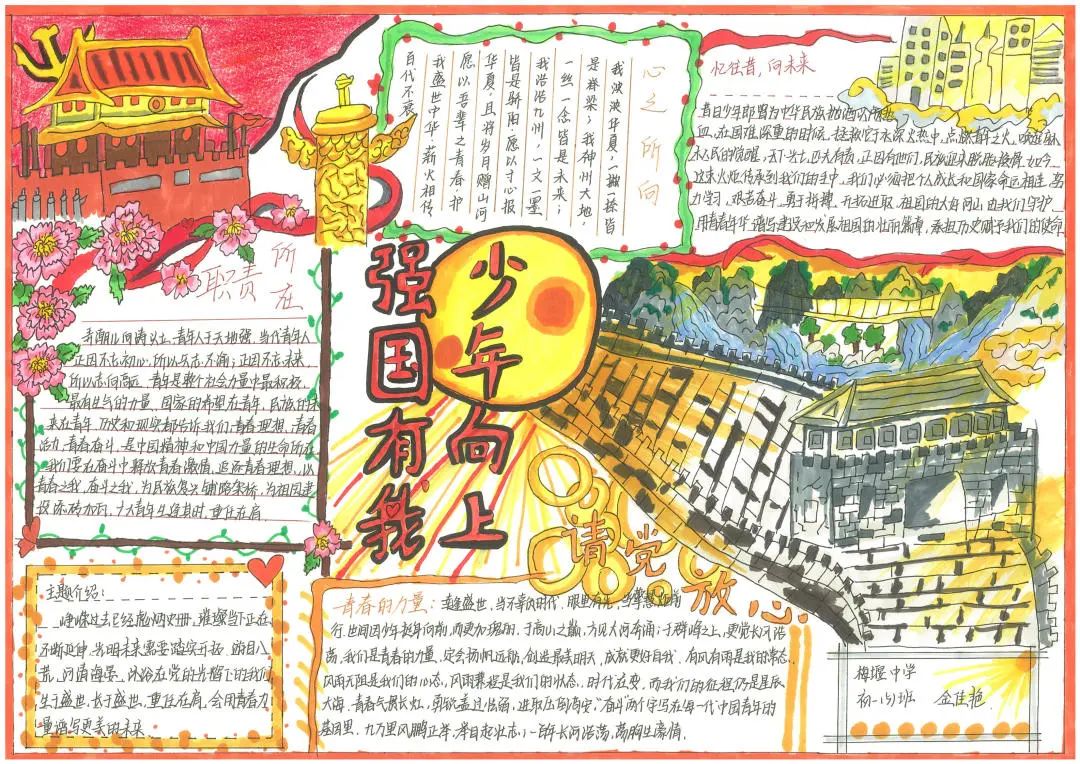 心之所向
我泱泱华夏，一撇一捺皆
是脊梁；我神州大地，
一丝一念皆是未来；
我浩浩九州，一文一墨
皆是骄阳。愿以寸心报
华夏，且将岁月赠山河
愿以吾辈之青春，护
我盛世中华，薪火相传
百代不衰
忆往昔，向未来
血，在国难深重的时候，拯救
这束火炬传承到我们的手中，我们必须把个人成长和国家命运相连，努
力学习，艰苦奋斗，勇于拼搏，开拓进取，祖国的大好河山由我们守护，
用青春年华谱写建设和发展祖国的壮丽篇章，承担历史赋予我们的使命
职责所在
弄潮儿向涛头立，青年人于天地强，当代青年人
正因不忘初心，所以矢志不渝；正因不忘未来，
所以志向高远。青年是整个社会力量中最积极、
最有生气的力量，国家的希望在青年，民族的未
来在青年，历史和现实都告诉我们，青春理想，青春
活力，青春奋斗，是中国精神和中国力量的生命所在
我们要在奋斗中释放青春激情，追逐青春理想，以
青春之我，奋斗之我，为民族复兴铺路架桥，为祖国建
设添砖加瓦，广大青年生逢其时，重任在肩
少年向上
强国有我
请党放心
主题介绍：
峥嵘过去已经载入史册，璀璨当下正在
不断延伸，光明未来需要踏实开拓，路目八
荒，河清海晏，沐浴在党的光辉下的我们
生于盛世，长于盛世，重任在肩，会用青春力
量谱写更美的未来
青春的力量：幸逢盛世，当不辜负时代，眼里有光，
行。世间因少年挺身向前，而更加瑰丽，于高山之巅，方见大河奔涌；于群峰之上，更觉长风浩
荡，我们是青春的力量，定会扬帆远航，创造最美明天，成就更好自我。有风有雨是我的常态，
风雨无阻是我们的心态，风雨兼程是我们的状态，时代在变，而我们的征程仍是星辰
大海。青春气贯长虹，勇锐盖过怯弱，进取压倒苟安，“奋斗”两个字写在每一代中国青年的
蓝图里。九万里风鹏正举，举目起壮志；一百年长河浩荡，荡胸生豪情。
梅堰中学
初一(5)班 金佳艳